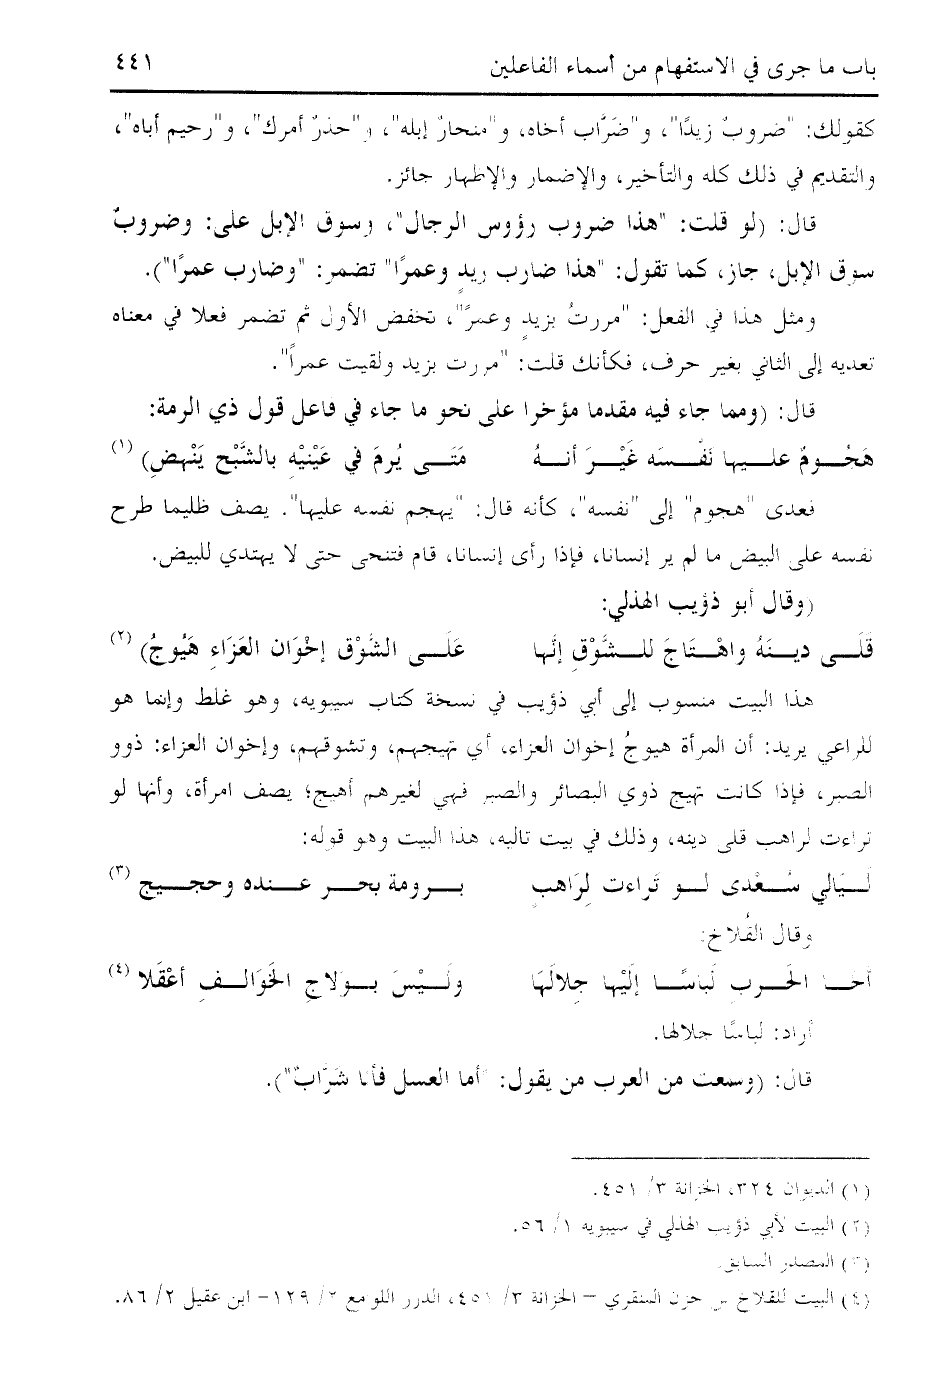 باب ما جرى في الاستفهام من أسماء الفاعلين ٤٤١
كقولك: "ضروبٌ زيدًا"، و"ضَرَّاب أخاه، و"منحارٌ إبله"، و"حذرٌ أمرك"، و"رحيم أباه"،
والتقديم في ذلك كله والتأخير، والإضمار والإظهار جائز.
قال: (لو قلت: "هذا ضروب رؤوس الرجال"، وسوق الإبل على: وضروبٌ
سوق الإبل، جاز، كما تقول: "هذا ضارب زيدٍ وعمرًا" تضمر: "وضارب عمرًا").
ومثل هذا في الفعل: "مررتُ بزيدٍ وعمرًا"، تخفض الأول ثم تضمر فعلا في معناه
تعديه إلى الثاني بغير حرف، فكأنك قلت: "مررت بزيد ولقيت عمراً".
قال: (ومما جاء فيه مقدما مؤخرا على نحو ما جاء في فاعل قول ذي الرمة:
هَجُومٌ عليها نَفْسَه غَيْرَ أنهُ مَتَى يُرمَ في عَيْنَيْهِ بالشَّبْح يَنْهضِ) (١)
فعدى "هجوم" إلى "نفسه"، كأنه قال: "يهجم نفسه عليها". يصف ظليما طرح
نفسه على البيض ما لم ير إنسانا، فإذا رأى إنسانا، قام فتنحى حتى لا يهتدي للبيض.
(وقال أبو ذؤيب الهذلي:
قَلَى دينَهُ واهْتَاجَ للشَّوْقِ إنَّها عَلَى الشَّوْق إخْوَان العَزَاءِ هَيُوجُ) (٢)
هذا البيت منسوب إلى أبي ذؤيب في نسخة كتاب سيبويه، وهو غلط وإنما هو
للراعي يريد: أن المرأة هيوجُ إخوان العزاء، أي تهيجهم، وتشوقهم، وإخوان العزاء: ذوو
الصبر، فإذا كانت تهيج ذوي البصائر والصبر فهي لغيرهم أهيج؛ يصف امرأة، وأنها لو
تراءت لراهب قلى دينه، وذلك في بيت تاليه، هذا البيت وهو قوله:
لَيَالي سُعْدى لو تَراءت لِرَاهبٍ برومة بحر عنده وحجيج (٣)
وقال القُلاخ:
أخا الحَربِ لَباسًا إلَيْها جِلالَهَا ولَيْسَ بولاجِ الخَوَالفِ أعْقَلا (٤)
أراد: لباسًا جلالها.
قال: (وسمعت من العرب من يقول: "أما العسل فأنا شَرَّابٌ").
(١) الديوان ٣٢٤، الخزانة ٣/ ٤٥١.
(٢) البيت لأبي ذؤيب الهذلي في سيبويه ١/ ٥٦.
(٣) المصدر السابق.
(٤) البيت للقلاخ بن حزن المنقري – الخزانة ٣/ ٤٥١، الدرر اللوامع ٢/ ١٢٩– ابن عقيل ٢/ ٨٦.